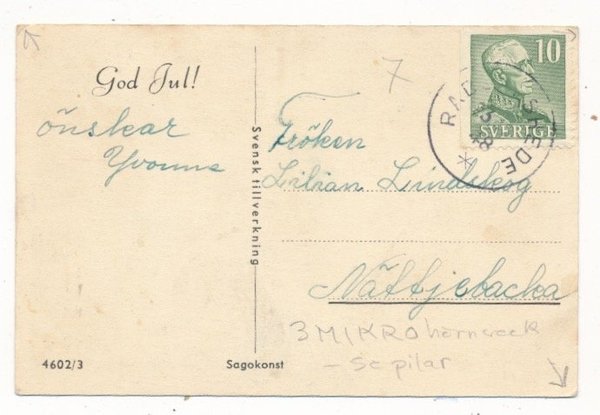 God Jul!
önskar
Yvonne
Svensk tillverkning
7
10
SVERIGE
Fröken
Lilian Lindskog
Nättjebacka
3 MIKRO hörnveck
- se pilar
4602/3
Sagokonst